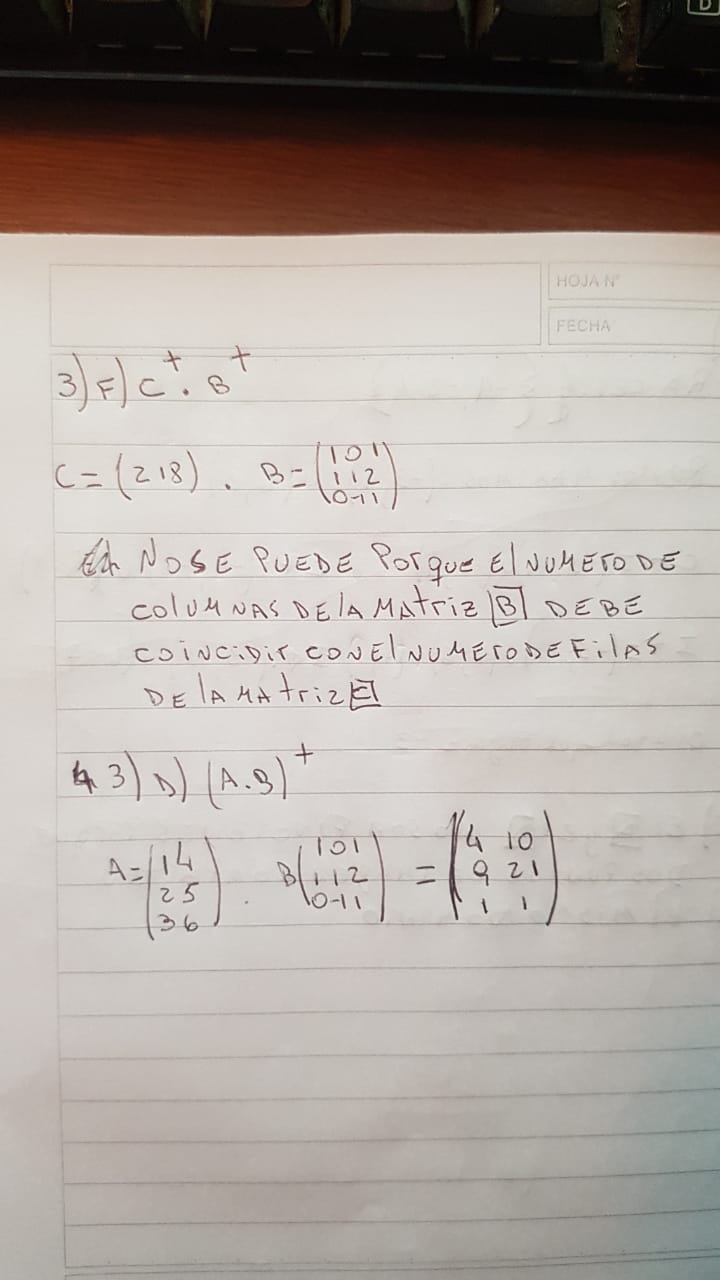 HOJA N°
FECHA
3) F) C⁺ . B⁺
C = (2 1 8) . B = (1 0 1
1 1 2
0 -1 1)
NO SE PUEDE PorquE El NUMEro DE
COLUMNAS DE lA MAtriz B DEBE
COINCIDIr CON El NUMEro DE FilAS
DE lA MAtriz C
3) D) (A.B)⁺
A = (1 4
2 5
3 6) . B (1 0 1
1 1 2
0 -1 1) = (4 10
9 21
1 1)